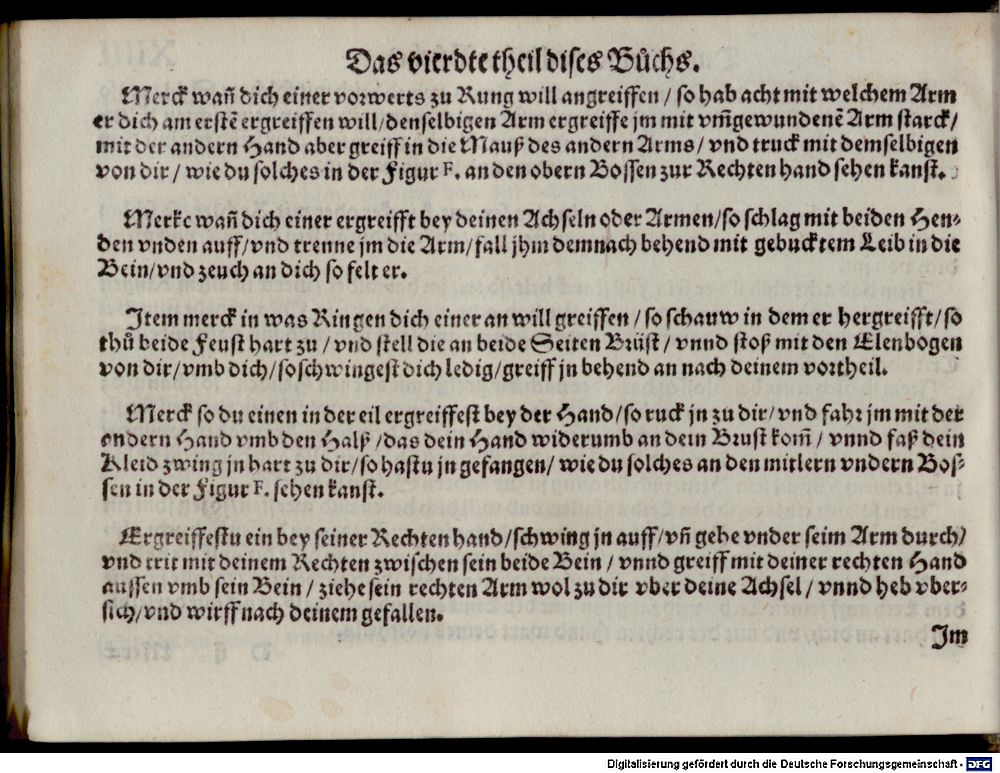 Das vierdte theil dises Bůchs.
Merck wañ dich einer vorwerts zu Rung will angreiffen / so hab acht mit welchem Arm
er dich am erstẽ ergreiffen will/denselbigen Arm ergreiffe jm mit vm̃gewundenẽ Arm starck/
mit der andern Hand aber greiff in die Mauß des andern Arms/ vnd truck mit demselbigen
von dir / wie du solches in der Figur F. an den obern Bossen zur Rechten hand sehen kanst.
Merkc wañ dich einer ergreifft bey deinen Achseln oder Armen/so schlag mit beiden Hen-
den vnden auff/vnd trenne jm die Arm/fall jhm demnach behend mit gebucktem Leib in die
Bein/vnd zeuch an dich so felt er.
Item merck in was Ringen dich einer an will greiffen / so schauw in dem er hergreifft/so
thů beide Feust hart zu / vnd stell die an beide Seiten Brüst / vnnd stoß mit den Elenbogen
von dir/vmb dich/so schwingest dich ledig/greiff jn behend an nach deinem vortheil.
Merck so du einen in der eil ergreiffest bey der Hand/so ruck jn zu dir/vnd fahr jm mit der
andern Hand vmb den Halß /das dein Hand widerumb an dein Brust kom̃ / vnnd faß dein
Kleid zwing jn hart zu dir/so hastu jn gefangen/ wie du solches an den mitlern vndern Bos-
sen in der Figur F. sehen kanst.
Ergreiffestu ein bey seiner Rechten hand/schwing jn auff/vñ gehe vnder seim Arm durch/
vnd trit mit deinem Rechten zwischen sein beide Bein / vnnd greiff mit deiner rechten Hand
aussen vmb sein Bein / ziehe sein rechten Arm wol zu dir vber deine Achsel / vnnd heb vber-
sich/vnd wirff nach deinem gefallen.
Im
Digitalisierung gefördert durch die Deutsche Forschungsgemeinschaft - DFG